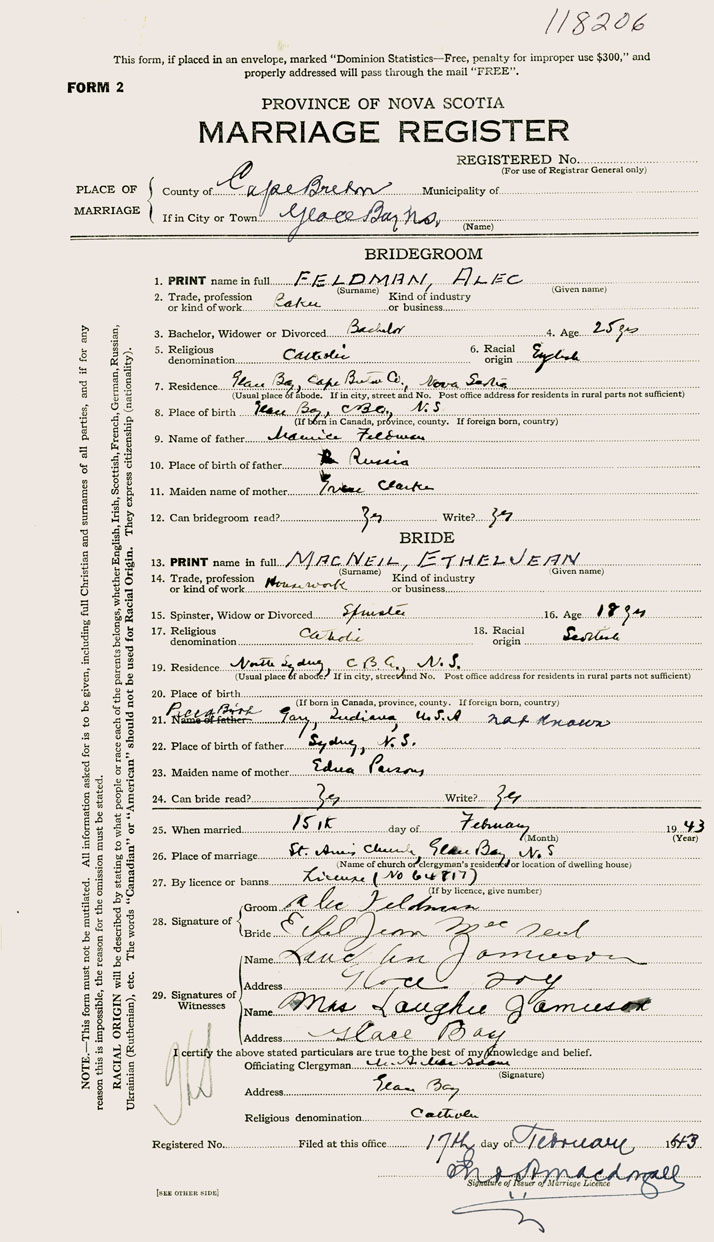 118206
This form, if placed in an envelope, marked "Dominion Statistics—Free, penalty for improper use $300," and
properly addressed will pass through the mail "FREE".
FORM 2
PROVINCE OF NOVA SCOTIA
MARRIAGE REGISTER
REGISTERED No.
(For use of Registrar General only)
PLACE OF MARRIAGE
County of Cape Breton Municipality of
If in City or Town Glace Bay N.S.
(Name)
BRIDEGROOM
1. PRINT name in full FELDMAN, ALEC
(Surname) (Given name)
2. Trade, profession or kind of work Kind of industry or business
3. Bachelor, Widower or Divorced Bachelor 4. Age 25 yrs
5. Religious denomination Catholic 6. Racial origin English
7. Residence Glace Bay, Cape Breton Co., Nova Scotia
(Usual place of abode. If in city, street and No. Post office address for residents in rural parts not sufficient)
8. Place of birth Glace Bay, C.B.Co., N.S
(If born in Canada, province, county. If foreign born, country)
9. Name of father Maurice Feldman
10. Place of birth of father Russia
11. Maiden name of mother Clarke
12. Can bridegroom read? Yes Write? Yes
BRIDE
13. PRINT name in full MACNEIL, ETHELJEAN
(Surname) (Given name)
14. Trade, profession or kind of work Housework Kind of industry or business
15. Spinster, Widow or Divorced Spinster 16. Age 18 yrs
17. Religious denomination Catholic 18. Racial origin Scottish
19. Residence North Sydney, C.B.Co., N.S.
(Usual place of abode. If in city, street and No. Post office address for residents in rural parts not sufficient)
20. Place of birth
(If born in Canada, province, county. If foreign born, country)
Place of Birth
21. Name of father Gary, Indiana, U.S.A not known
22. Place of birth of father Sydney, N.S.
23. Maiden name of mother Edna Parsons
24. Can bride read? Yes Write? Yes
25. When married 15th day of February 1943
(Month) (Year)
26. Place of marriage St. Anns Church, Glace Bay, N.S
(Name of church or clergyman's residence or location of dwelling house)
27. By licence or banns License (No 64817)
(If by licence, give number)
28. Signature of
Groom Alec Feldman
Bride Ethel Jean MacNeil
29. Signatures of Witnesses
Name Jamieson
Address Glace Bay
Name Mrs Laughie Jamieson
Address Glace Bay
I certify the above stated particulars are true to the best of my knowledge and belief.
Officiating Clergyman
(Signature)
Address Glace Bay
Religious denomination Catholic
Registered No. Filed at this office 17th day of February 1943
Macdougall
Signature of Issuer of Marriage Licence
[SEE OTHER SIDE]
NOTE.—This form must not be mutilated. All information asked for is to be given, including full Christian and surnames of all parties, and if for any
reason this is impossible, the reason for the omission must be stated.
RACIAL ORIGIN will be described by stating to what people or race each of the parents belongs, whether English, Irish, Scottish, French, German, Russian,
Ukrainian (Ruthenian), etc. The words "Canadian" or "American" should not be used for Racial Origin. They express citizenship (nationality).